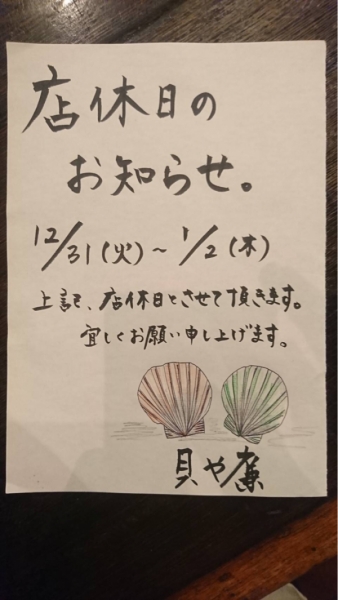 店休日の
お知らせ。
12/31(火)~1/2(木)
上記、店休日とさせて頂きます。
宜しくお願い申し上げます。
貝や廉